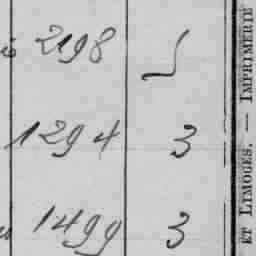 2198
1294 3
1499 3
ET LIMOGES. — IMPRIMERIE